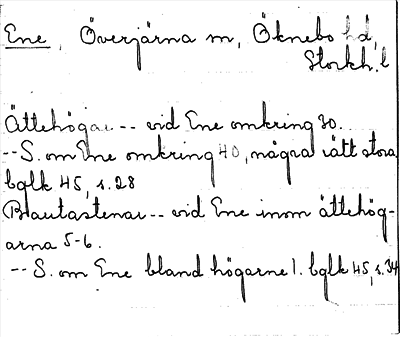 Ene, Överjärna sn, Öknebo hd,
Stockh. l
Ättehögar -- vid Ene omkring 30.
-- S. om Ene omkring 40, några rätt stora
bglk 45, s. 28
Bautastenar -- vid Ene inom ättehög-
arna 5-6.
-- S. om Ene bland högarne 1. bglk 45, s. 34